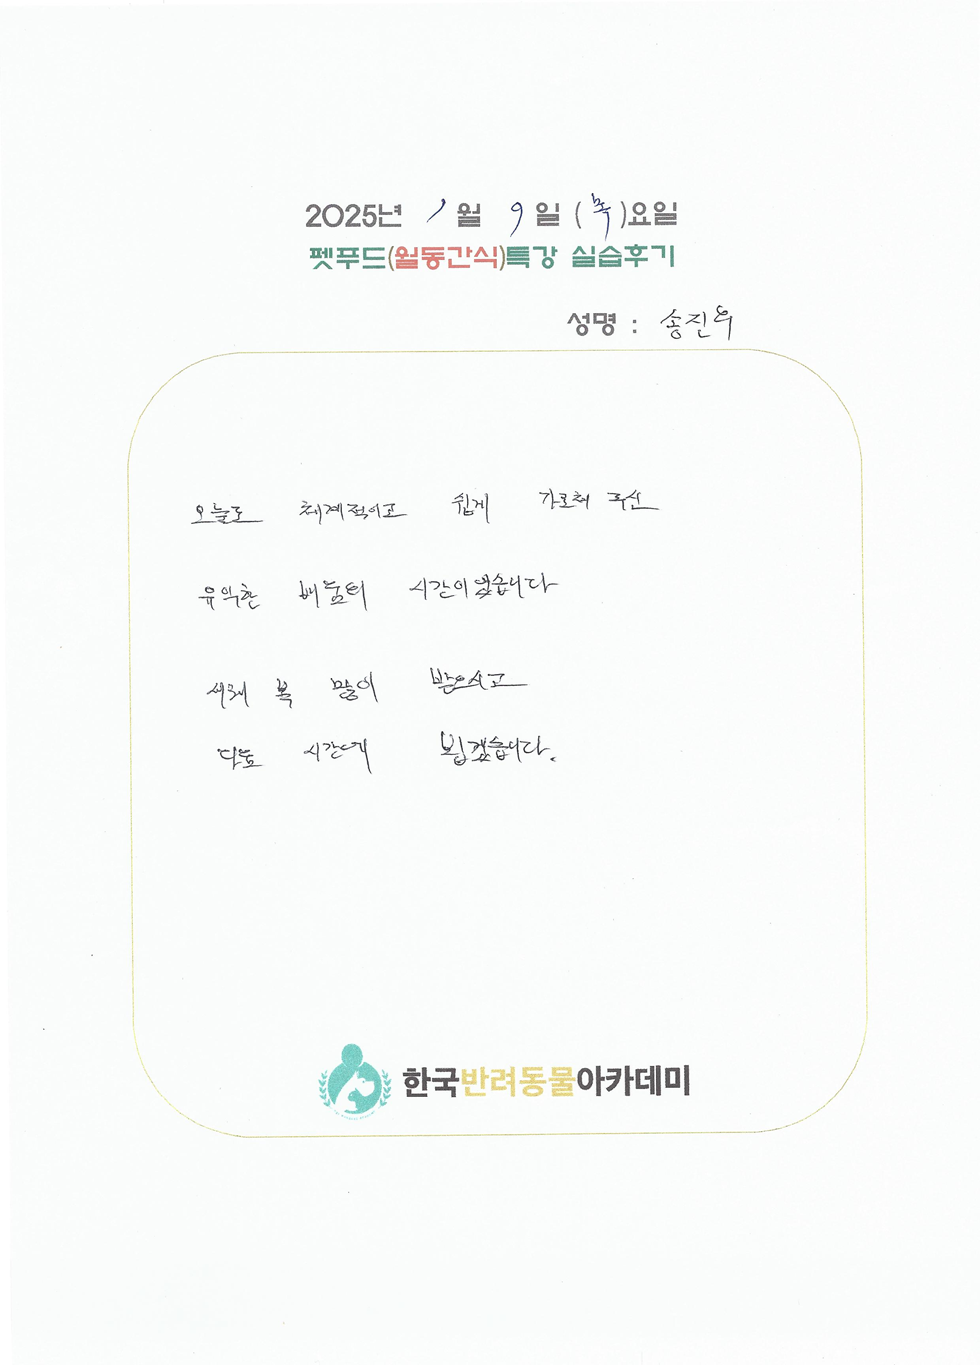 2025년 1월 9일 (목)요일
펫푸드(월동간식)특강 실습후기
성명 : 송진우
오늘도 체계적이고 쉽게 가르쳐 주신
유익한 배움의 시간이었습니다
새해 복 많이 받으시고
다음 시간에 뵙겠습니다.
한국반려동물아카데미